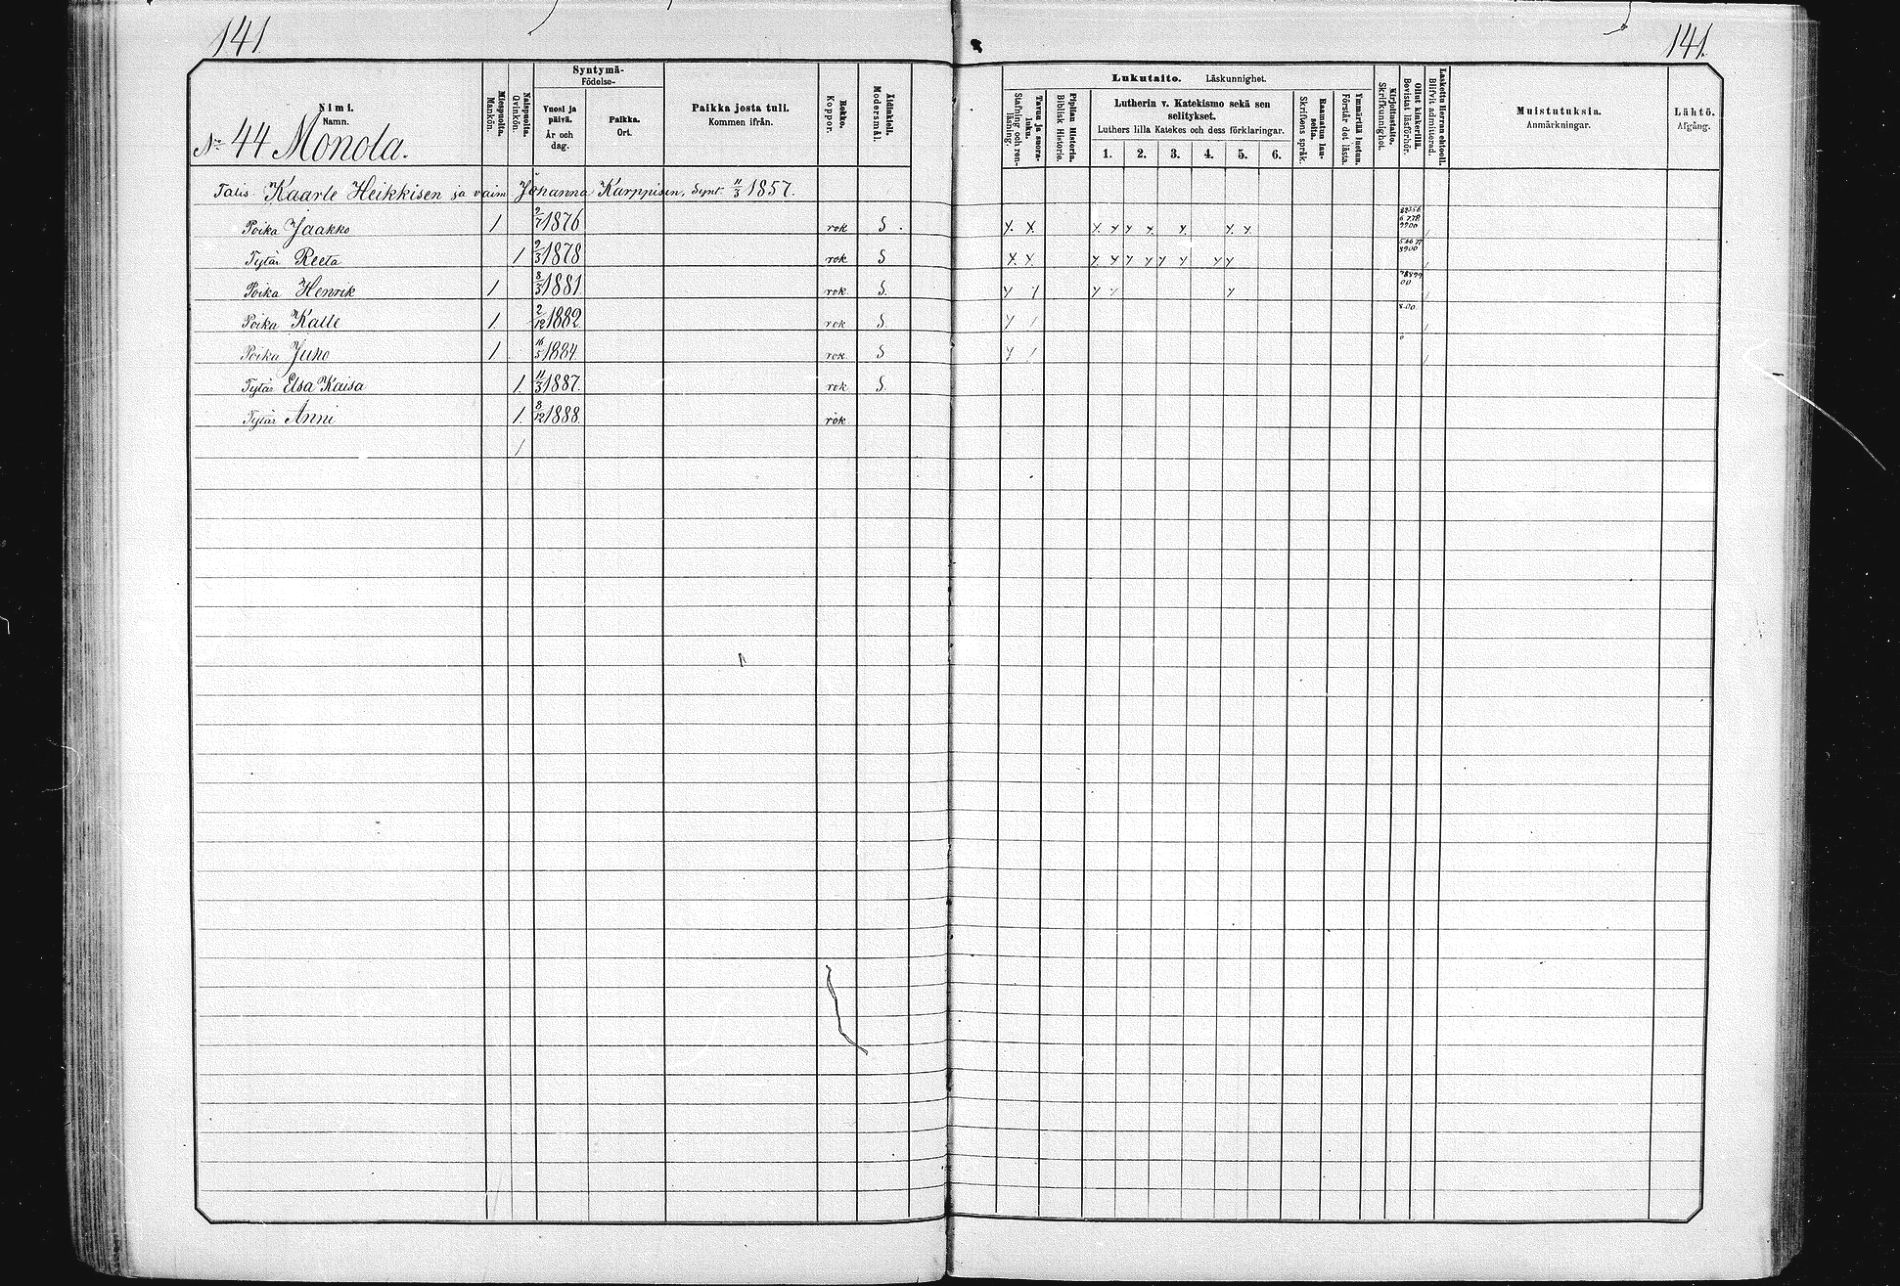 141
141.
Syntymä-
Födelse-
Nimi.
Namn.
Miespuolta.
Mankön.
Naispuolta.
Qvinkön.
Vuosi ja päivä.
År och dag.
Paikka.
Ort.
Paikka josta tuli.
Kommen ifrån.
Rokko.
Koppor.
Äidinkieli.
Modersmål.
Nº 44 Monola.
Lukutaito. Läskunnighet.
Tavuu ja suora-luku.
Stafning och ren-läsning.
Piplian Historia.
Biblisk Historie.
Lutherin v. Katekismo sekä sen
selitykset.
Luthers lilla Katekes och dess förklaringar.
1. 2. 3. 4. 5. 6.
Raamatun lau-seita.
Skriftens språk.
Ymmärtää luetun.
Förstår det lästa.
Kirjoitustaito.
Skrifkunnighet.
Ollut kinkerillä.
Bevistat läsförhör.
Laskettu Herran ehtooll.
Blifvit admitterad.
Muistutuksia.
Anmärkningar.
Lähtö.
Afgång.
Talis Kaarle Heikkisen ja vaim Johanna Karppisen, Synt. 11/3 1857.
Poika Jaakko 1 2/7 1876 rok S.
Tytär Reeta 1 2/3 1878 rok S
Poika Henrik 1 8/3 1881 rok S.
Poika Kalle 1 2/12 1882 rok S
Poika Juho 1 16/5 1884 rok S
Tytär Elsa Kaisa 1. 11/3 1887. rok S.
Tytär Anni 1. 8/12 1888. rok
1